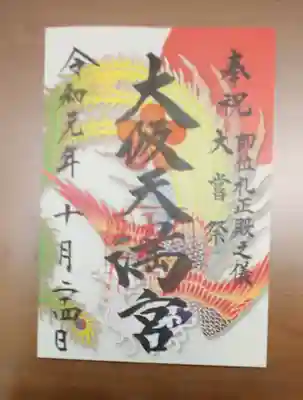 奉祝 即位礼正殿之儀
大嘗祭
大阪天満宮
令和元年十月二十四日